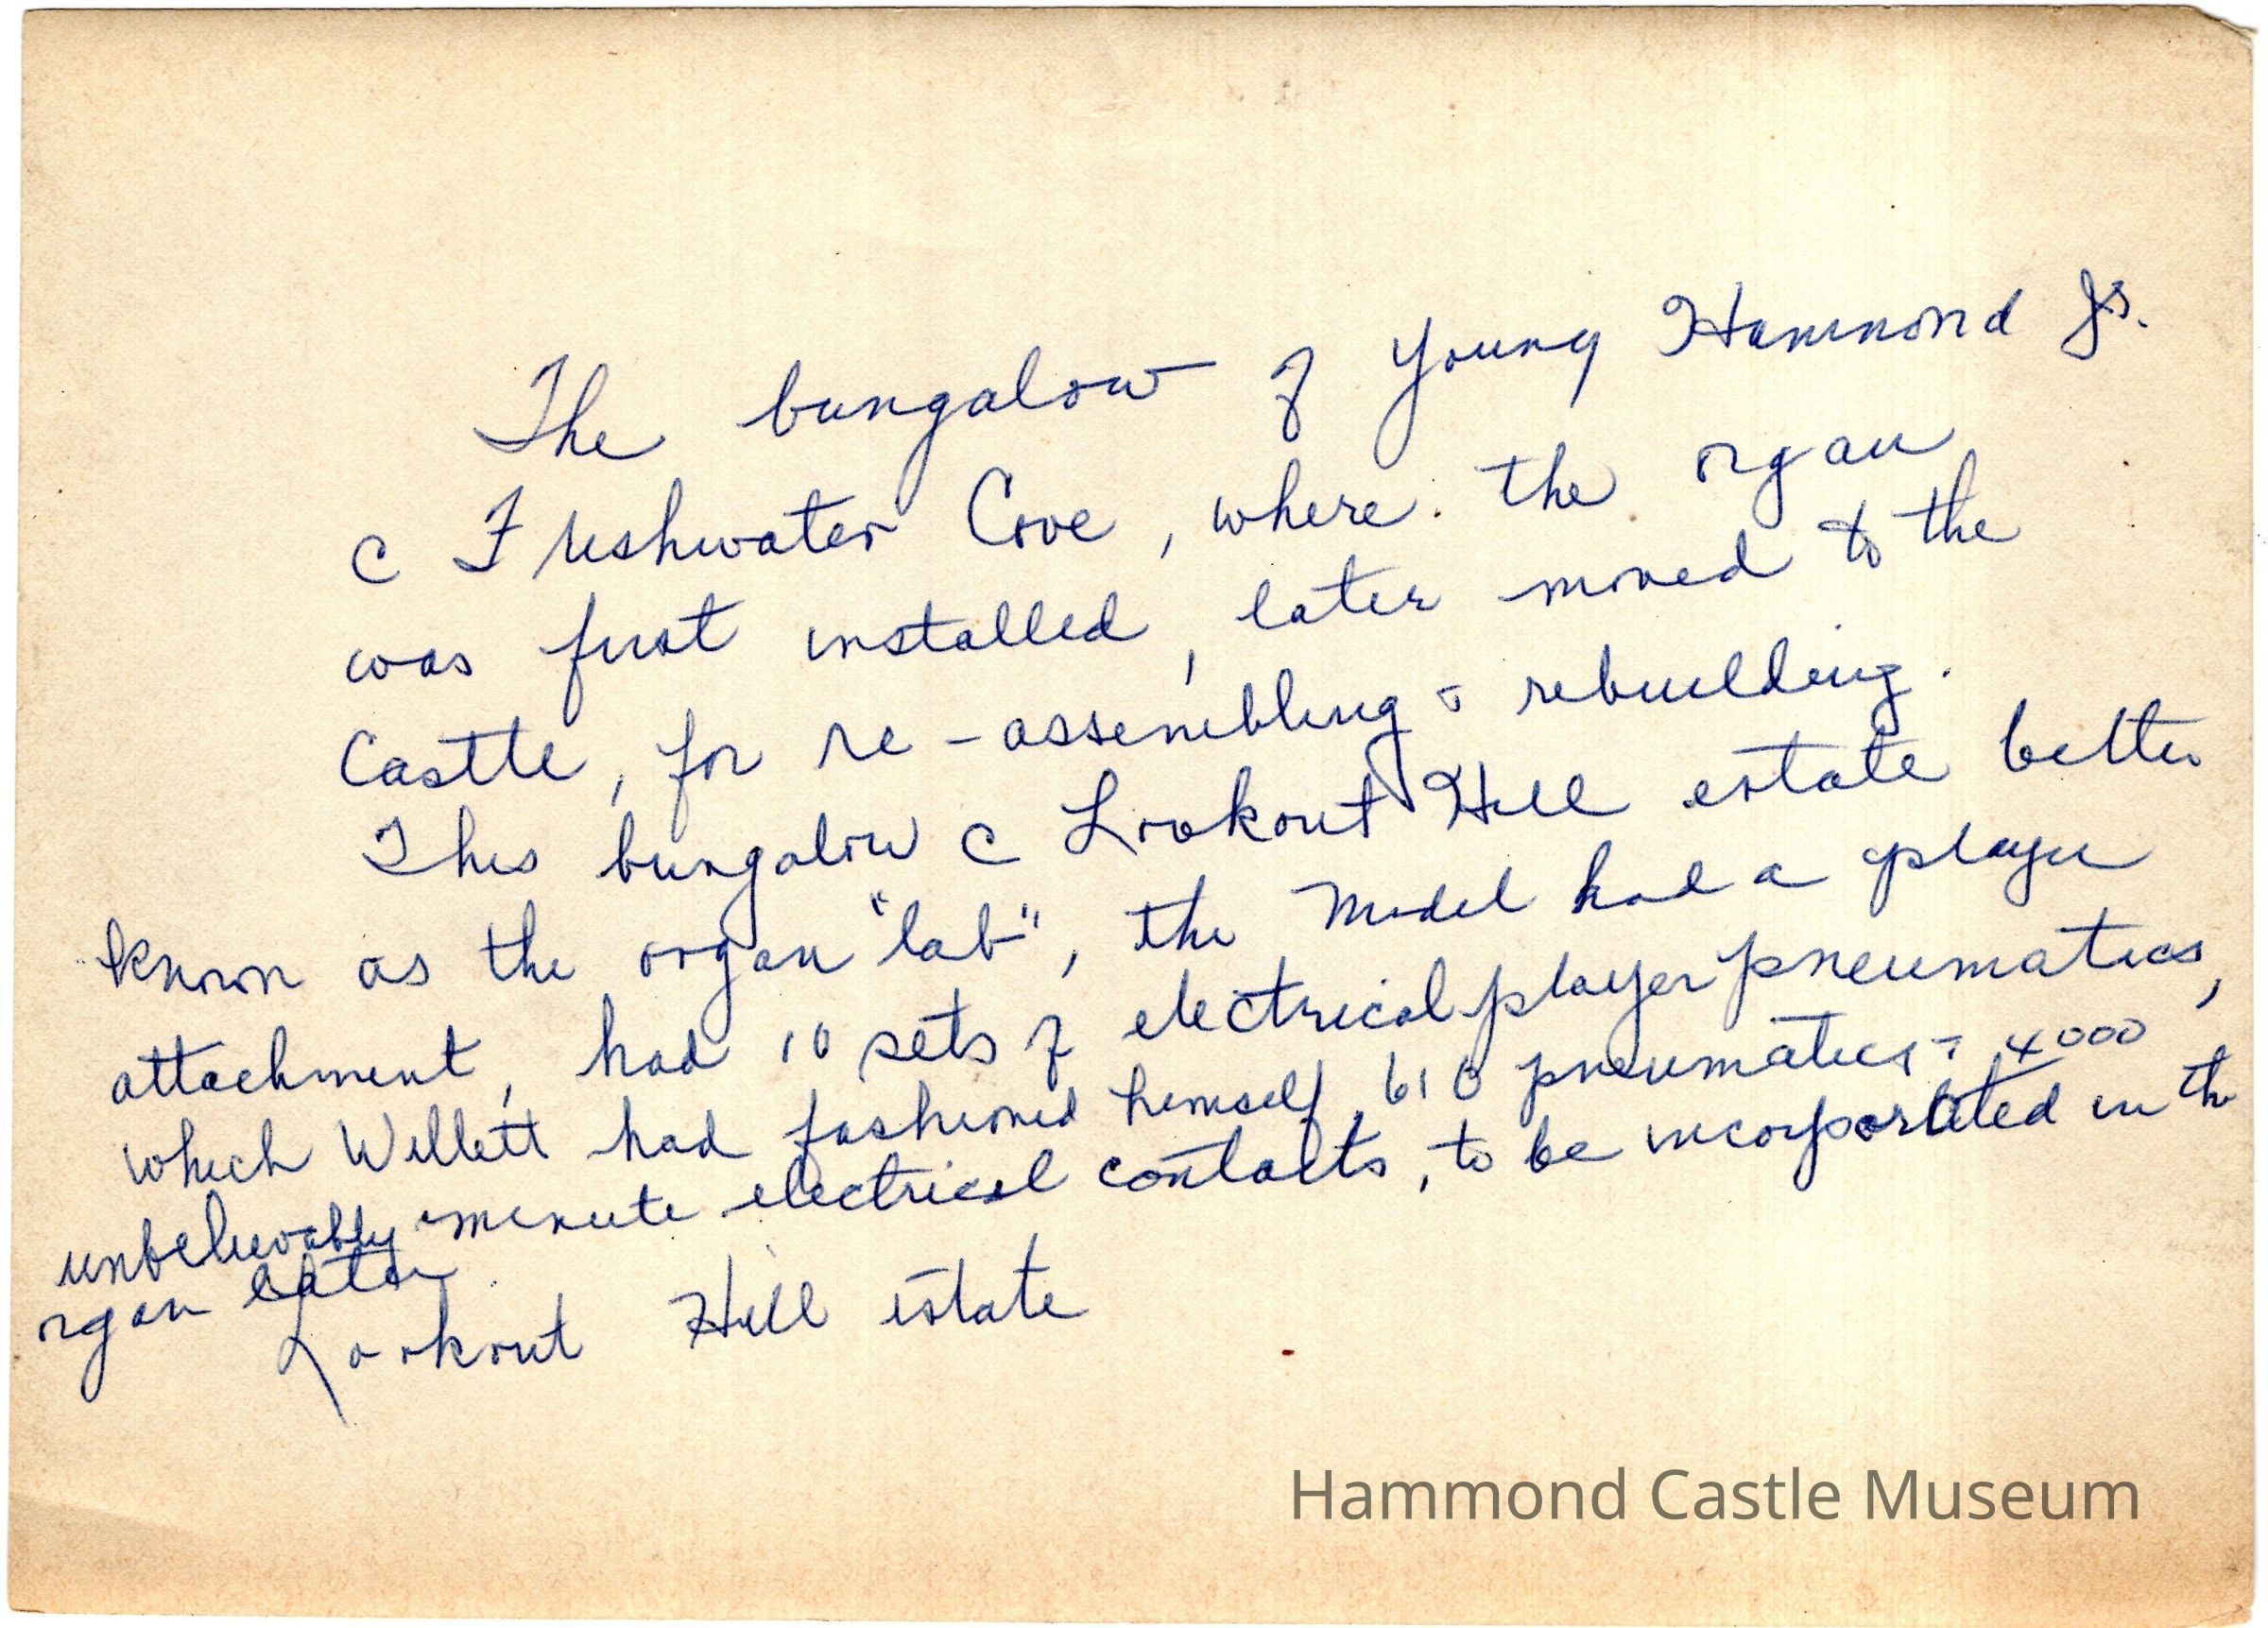 The bungalow of Young Hammond Jr.
c Freshwater Cove, where the organ
was first installed, later moved to the
Castle, for re-assembling & rebuilding.
This bungalow c Lookout Hill estate better
known as the organ "lab", the model had a player
attachment, had 10 sets of electrical player pneumatics,
which Willett had fashioned himself, 610 pneumatics = 4000
unbelievably minute electrical contacts, to be incorporated in the
organ later
Lookout Hill estate
Hammond Castle Museum